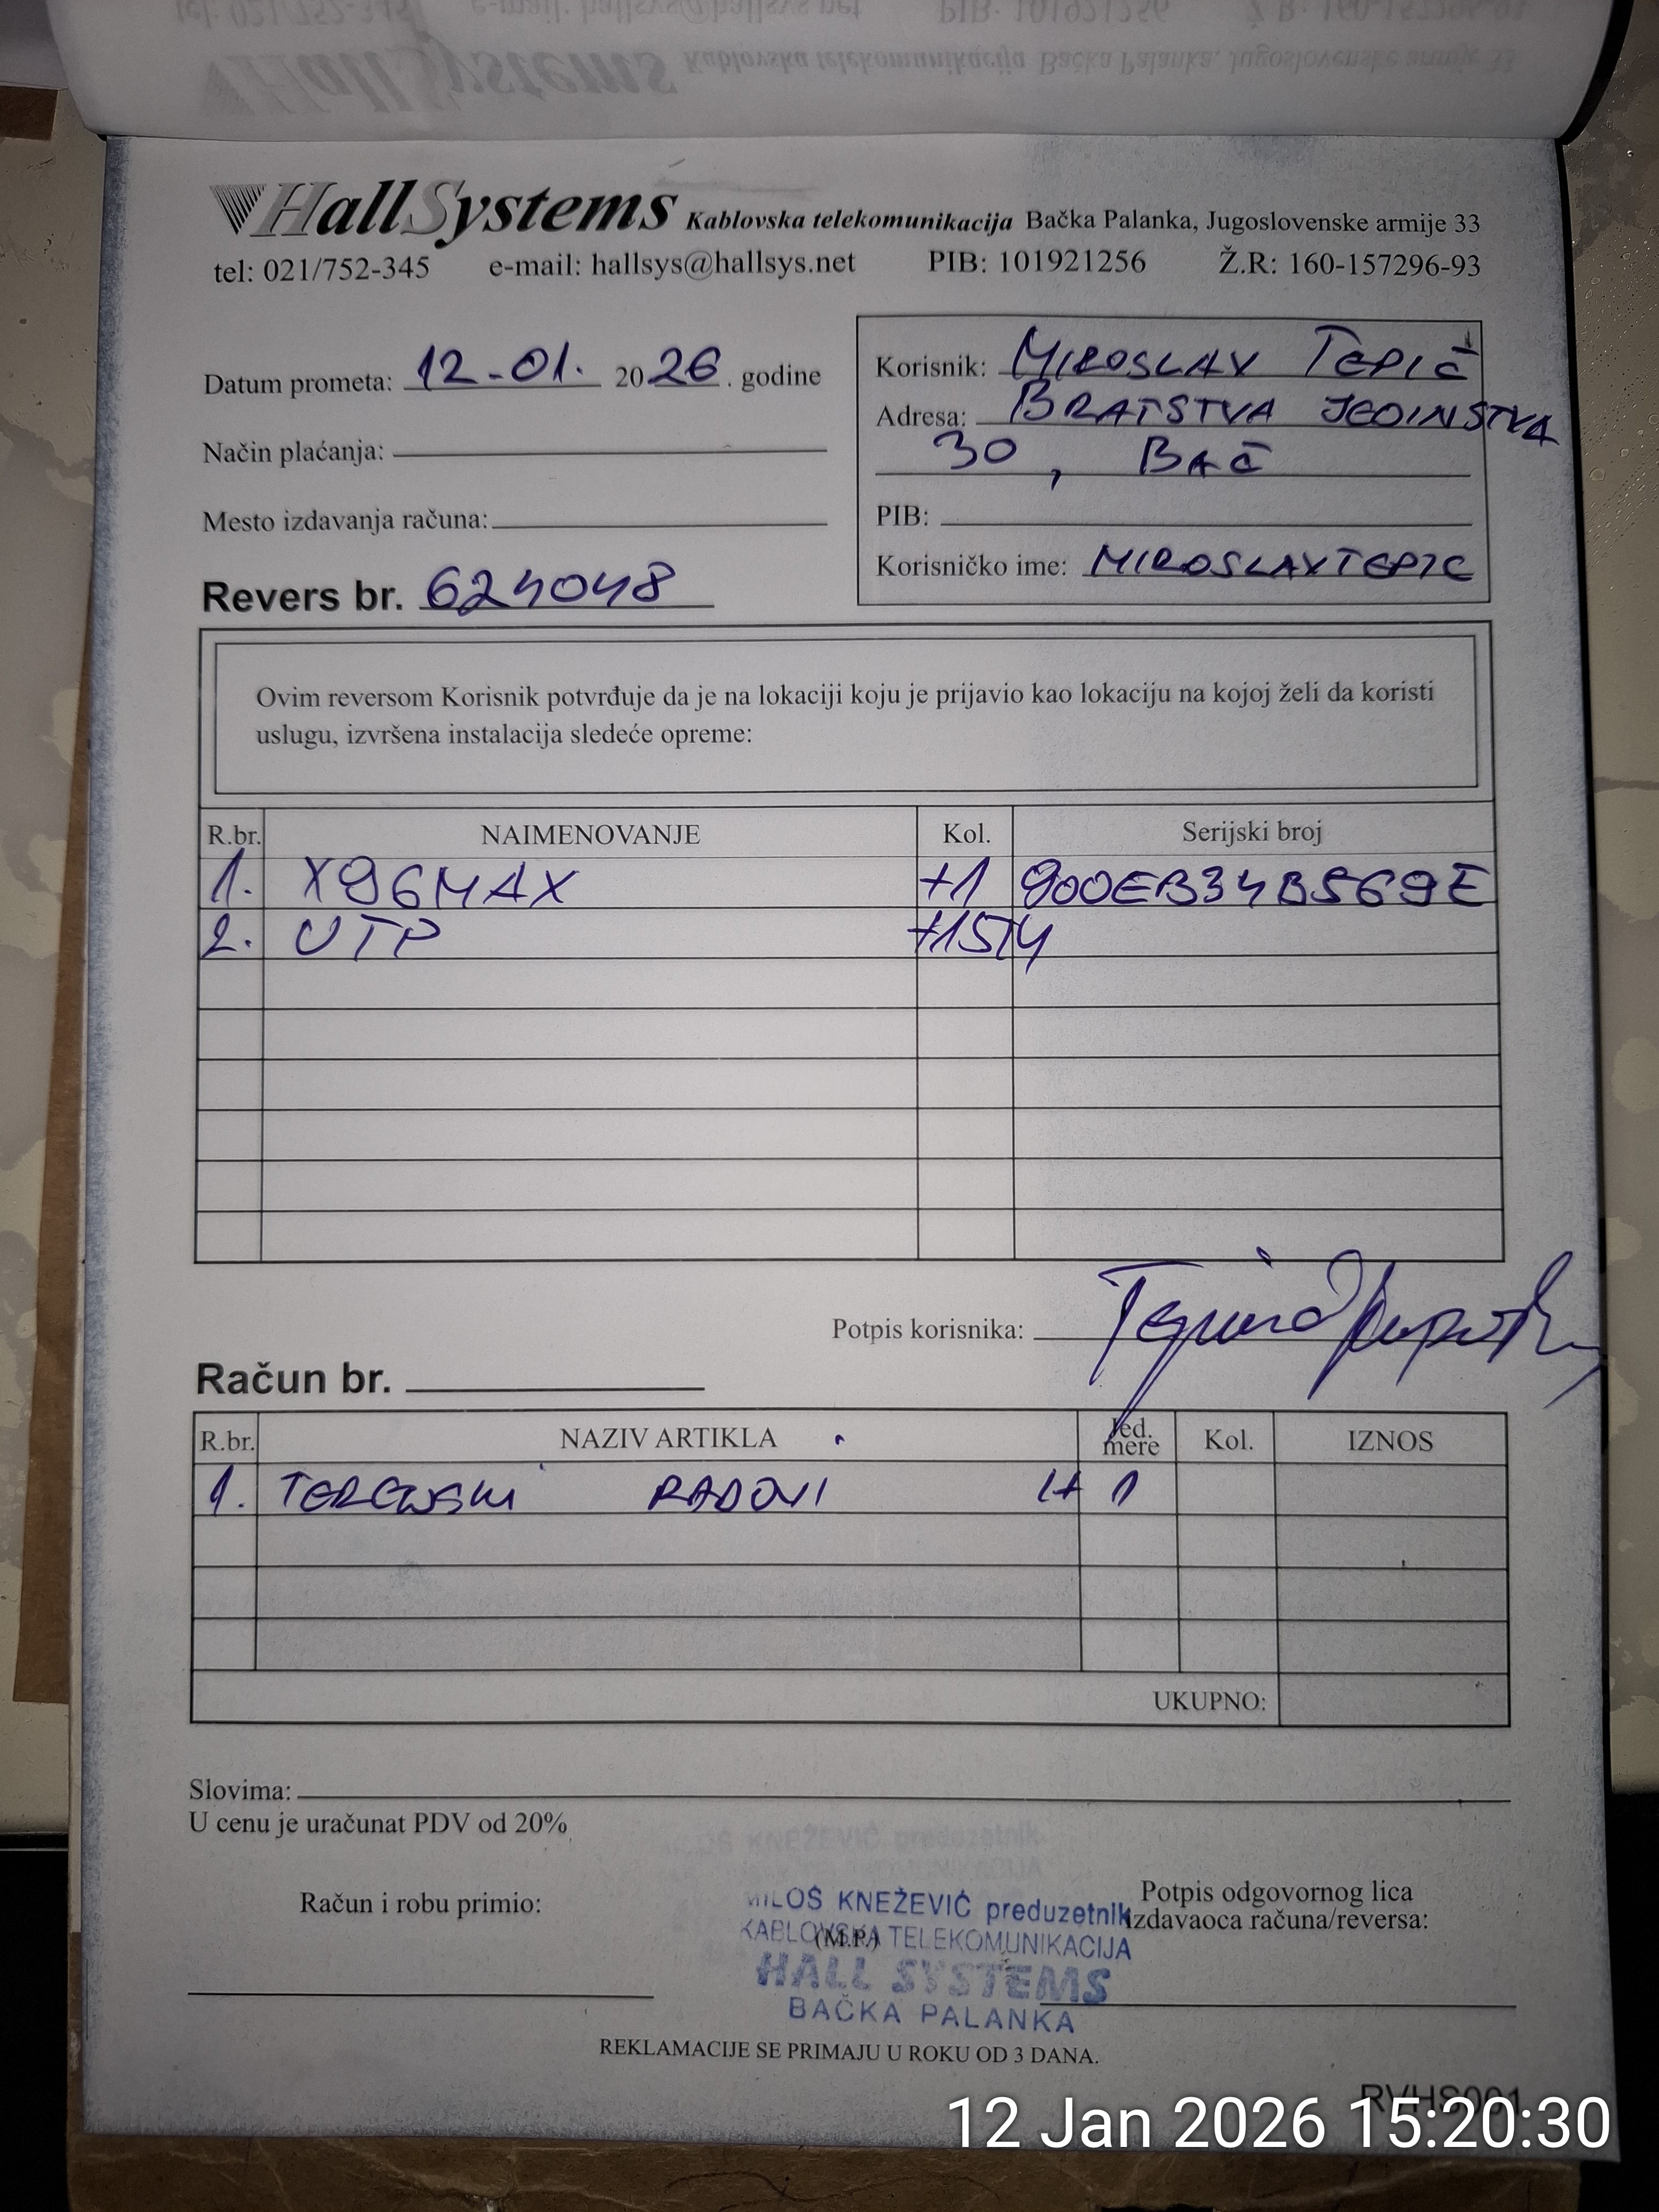 HallSystems Kablovska telekomunikacija Bačka Palanka, Jugoslovenske armije 33
tel: 021/752-345 e-mail: hallsys@hallsys.net PIB: 101921256 Ž.R: 160-157296-93
Datum prometa: 12-01. 2026. godine
Način plaćanja:
Mesto izdavanja računa:
Revers br. 624048
Korisnik: MIROSLAV TEPIĆ
Adresa: BRATSTVA JEDINSTVA
30, BAČ
PIB:
Korisničko ime: MIROSLAVTEPIC
Ovim reversom Korisnik potvrđuje da je na lokaciji koju je prijavio kao lokaciju na kojoj želi da koristi
uslugu, izvršena instalacija sledeće opreme:
R.br. NAIMENOVANJE Kol. Serijski broj
1. X96MAX +1 900EB34B569E
2. UTP
Potpis korisnika:
Račun br.
R.br. NAZIV ARTIKLA Jed. mere Kol. IZNOS
1. TERENSKI RADOVI 1
UKUPNO:
Slovima:
U cenu je uračunat PDV od 20%
Račun i robu primio:
MILOŠ KNEŽEVIĆ preduzetnik
KABLOVSKA TELEKOMUNIKACIJA
(M.P.)
HALL SYSTEMS
BAČKA PALANKA
Potpis odgovornog lica
izdavaoca računa/reversa:
REKLAMACIJE SE PRIMAJU U ROKU OD 3 DANA.
RVHS001
12 Jan 2026 15:20:30